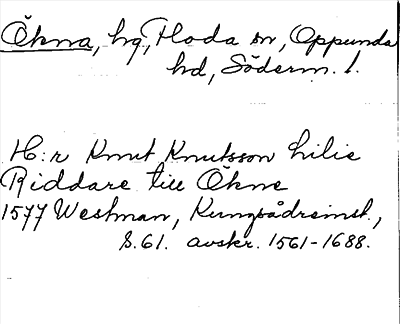 Ökna, hg, Floda sn, Oppunda
hd, Söderm. l.
H:r Knut Knutsson hilie
Riddare till Ökne
1577 Westman, Kungsådreinst.,
S. 61. avskr. 1561-1688.